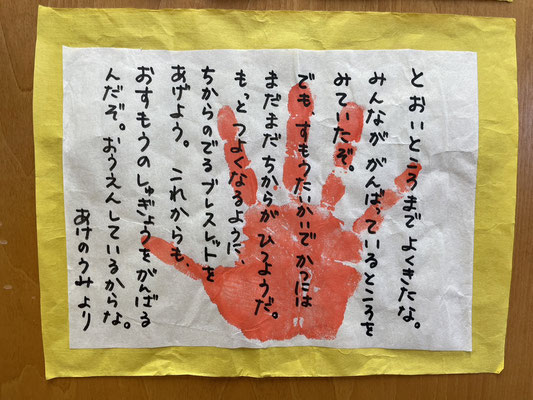 とおいところまで よくきたな。
みんなが がんばっているところを
みていたぞ。
でも、すもうたいかいで かつには
まだまだ ちからが ひつようだ。
もっと つよくなるように、
ちからのでる ブレスレットを
あげよう。 これからも、
おすもうの しゅぎょうを がんばる
んだぞ。 おうえんしているからな。
あけのうみ より